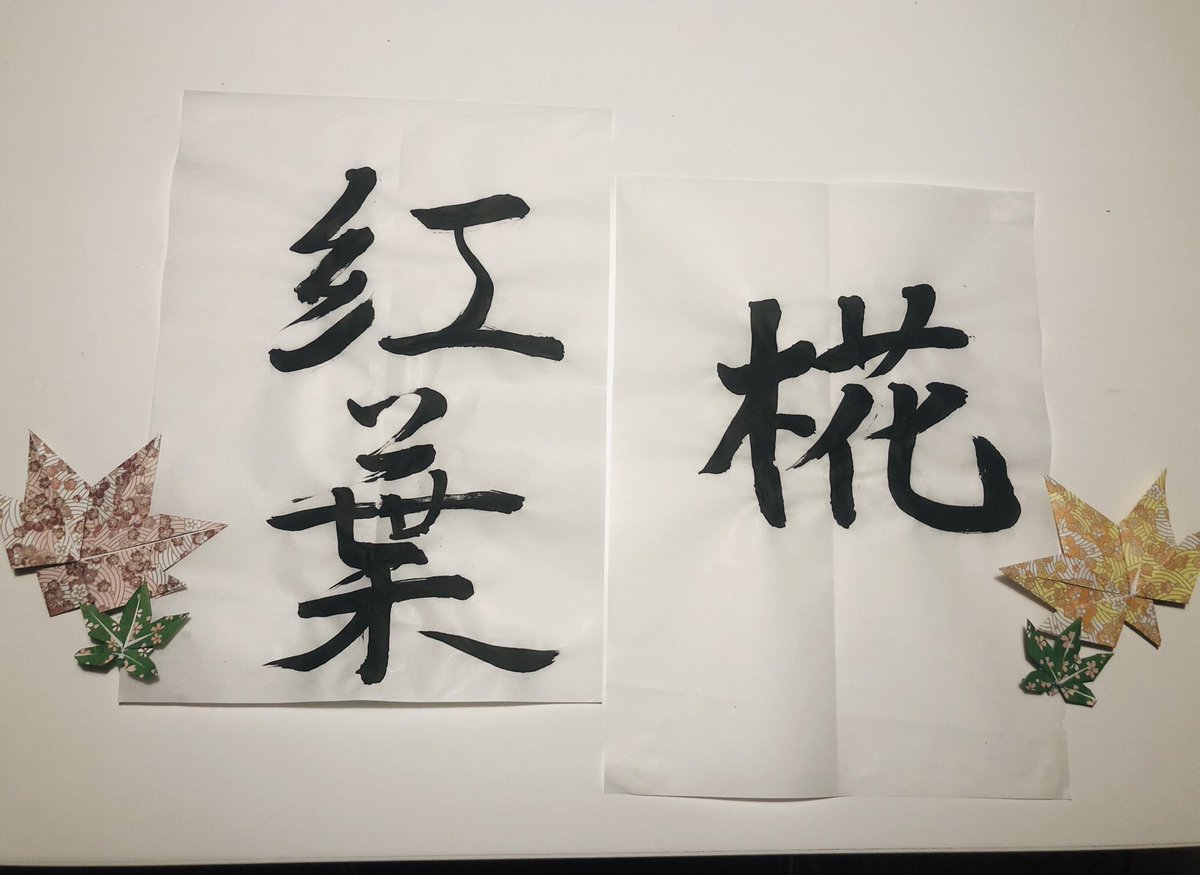 紅葉
椛